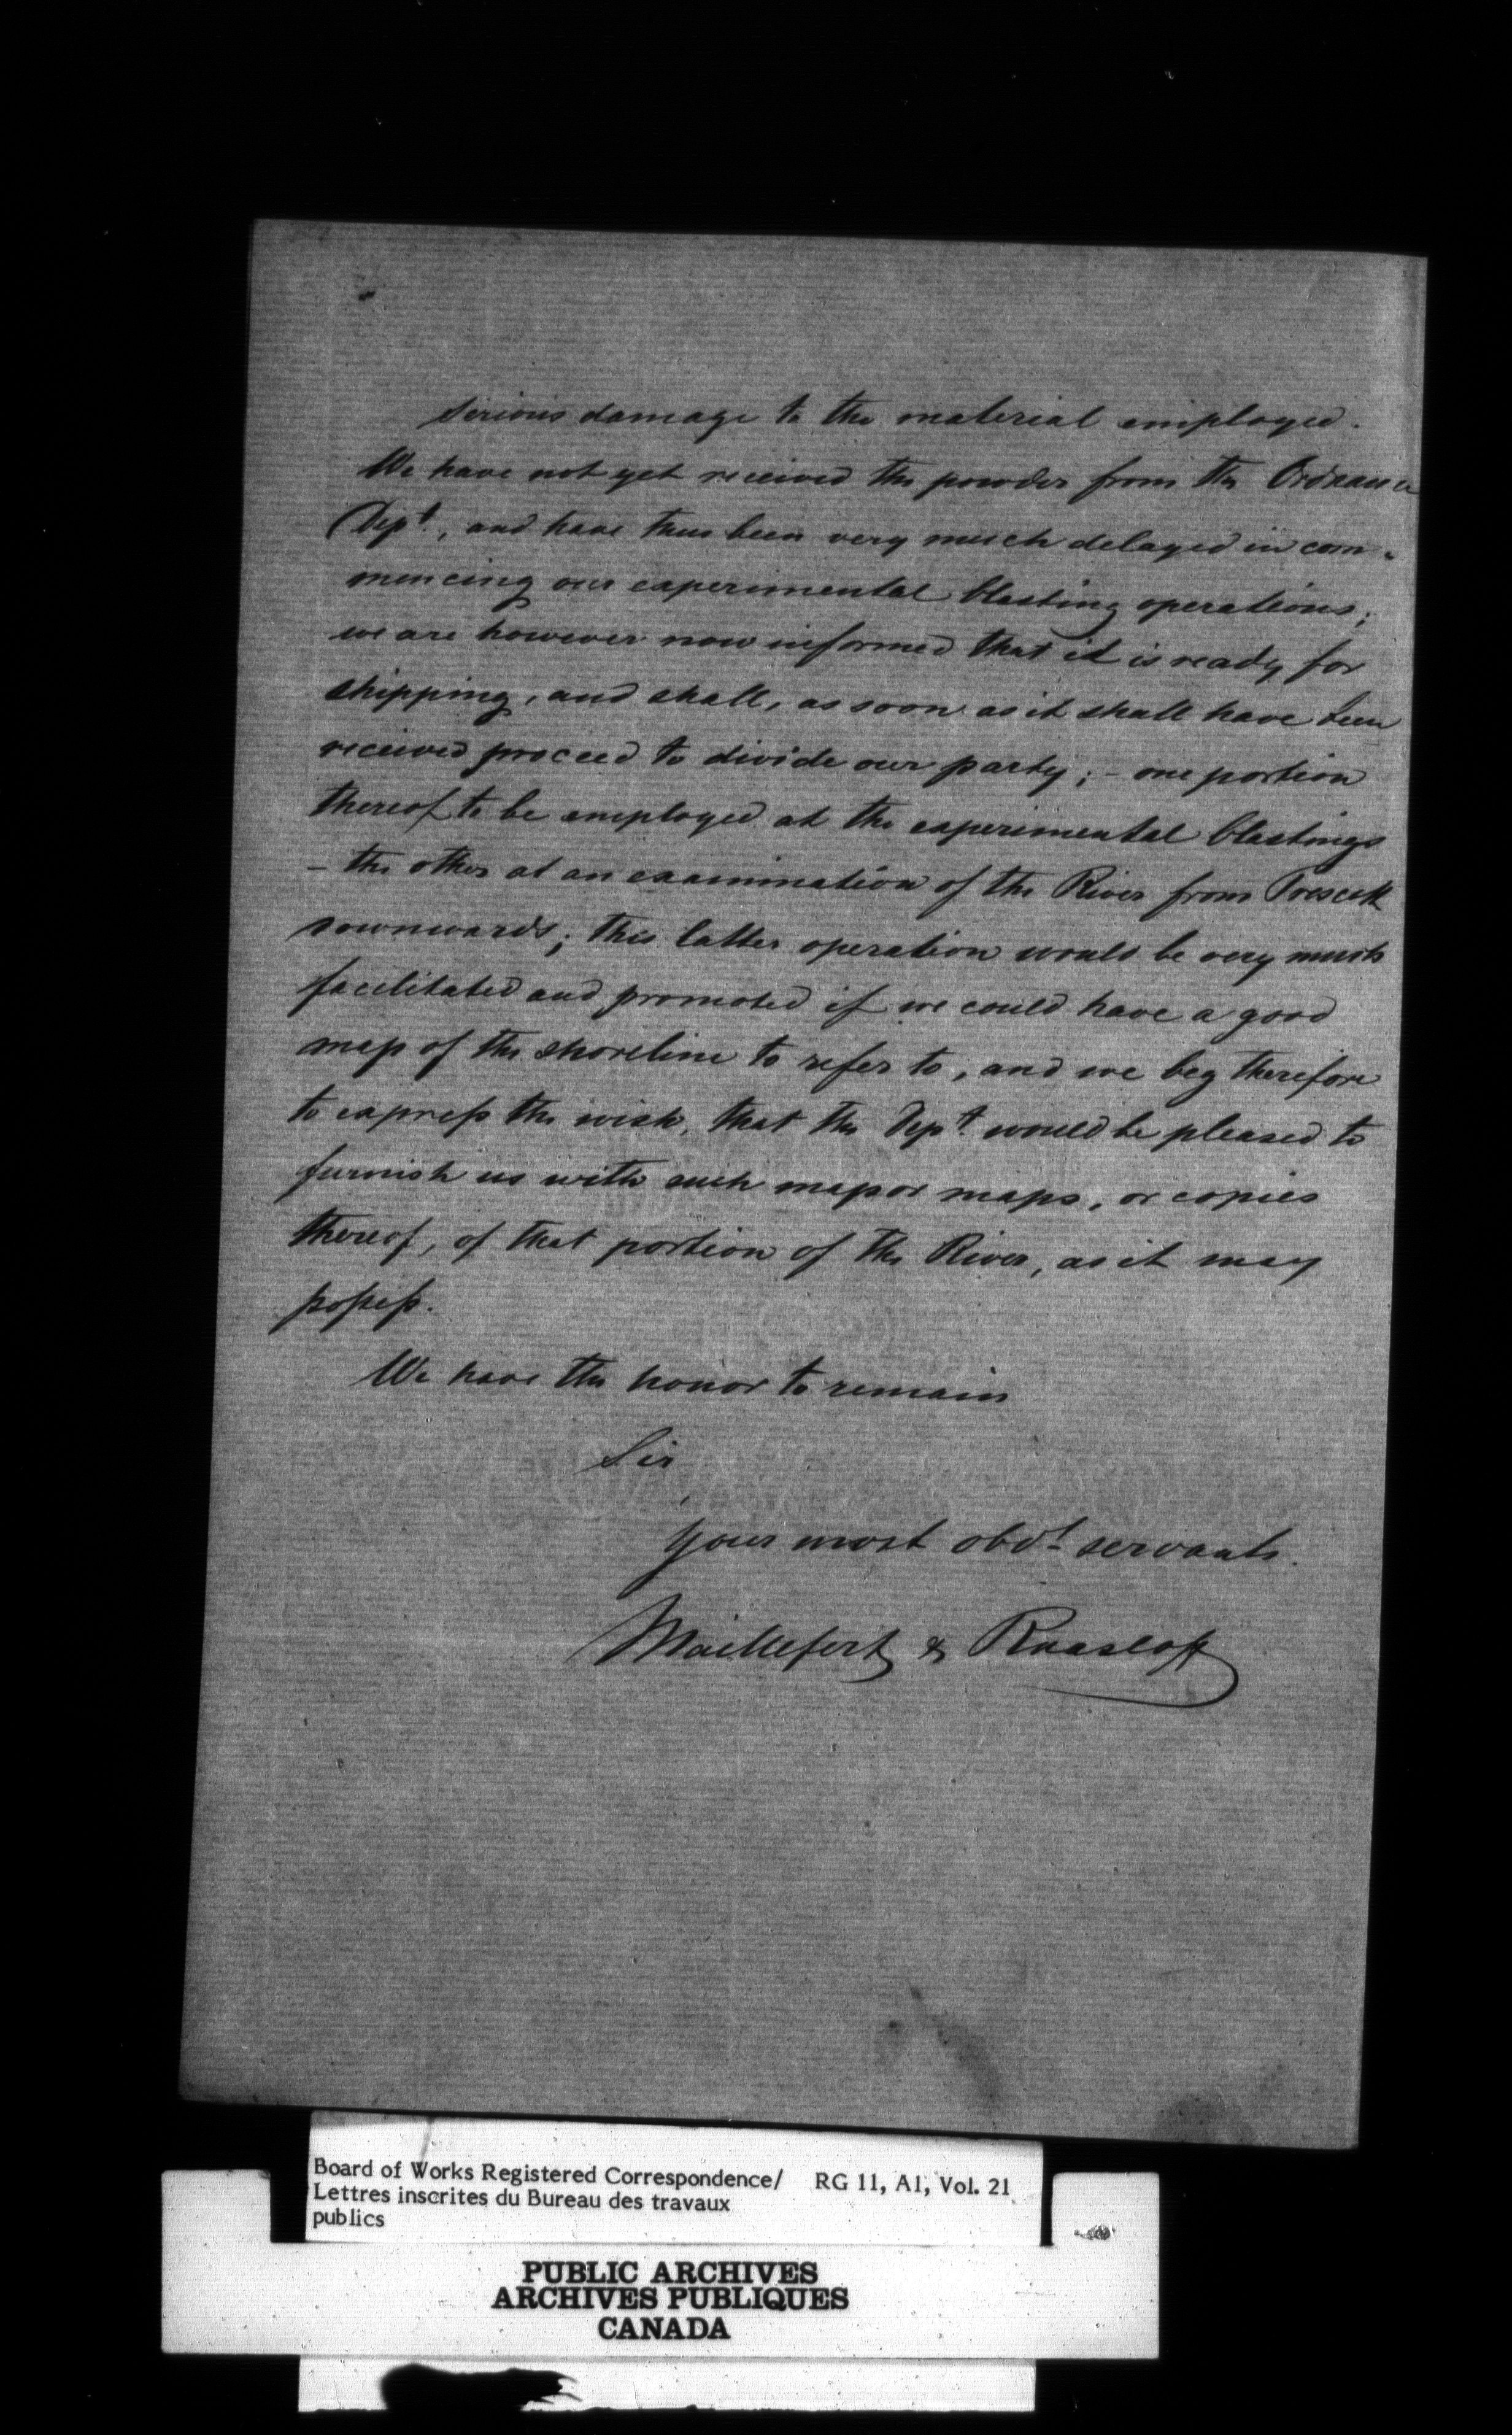 serious damage to the material employed.
We have not yet received the powder from the Ordnance
Dept., and have thus been very much delayed in com-
mencing our experimental blasting operations;
we are however now informed that it is ready for
shipping, and shall, as soon as it shall have been
received proceed to divide our party; - one portion
thereof to be employed at the experimental blastings
- the other at an examination of the River from Prescott
downwards; this latter operation would be very much
facilitated and promoted if we could have a good
map of the shoreline to refer to, and we beg therefore
to express the wish, that the Dept. would be pleased to
furnish us with such map or maps, or copies
thereof, of that portion of the River, as it may
possess.
We have the honor to remain
Sir
Your most obdt servants.
Maillefert & Raasloff
Board of Works Registered Correspondence/ RG 11, A1, Vol. 21
Lettres inscrites du Bureau des travaux
publics
PUBLIC ARCHIVES
ARCHIVES PUBLIQUES
CANADA